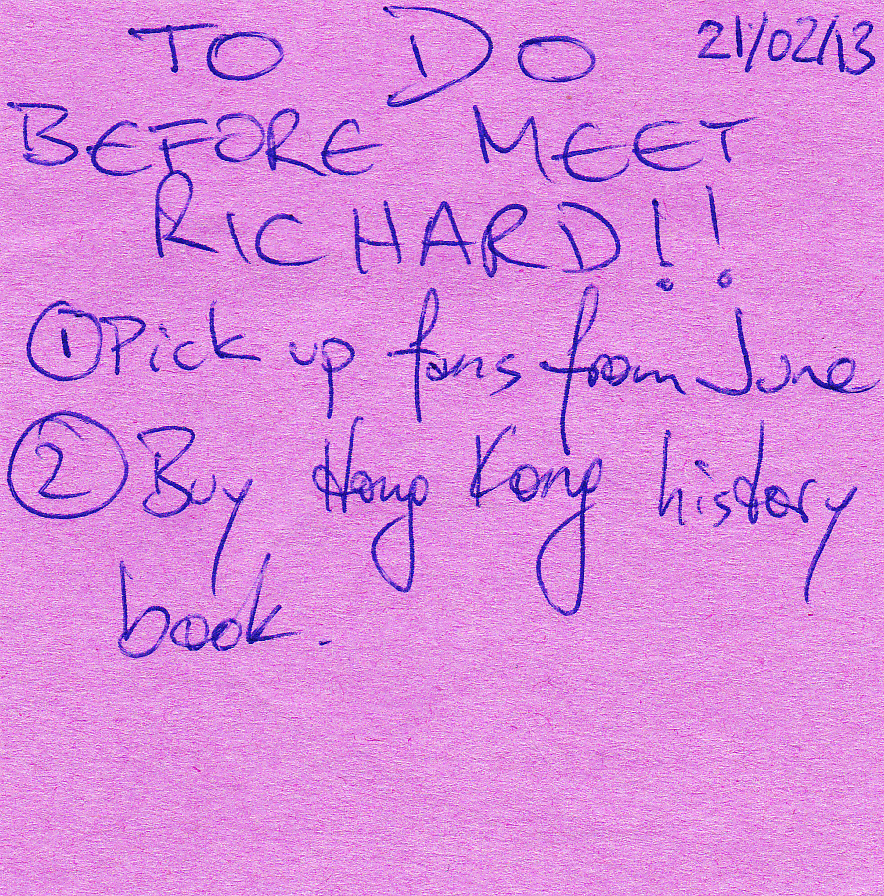 TO DO 21/02/13
BEFORE MEET
RICHARD!!
① Pick up fans from June
② Buy Hong Kong history
book.